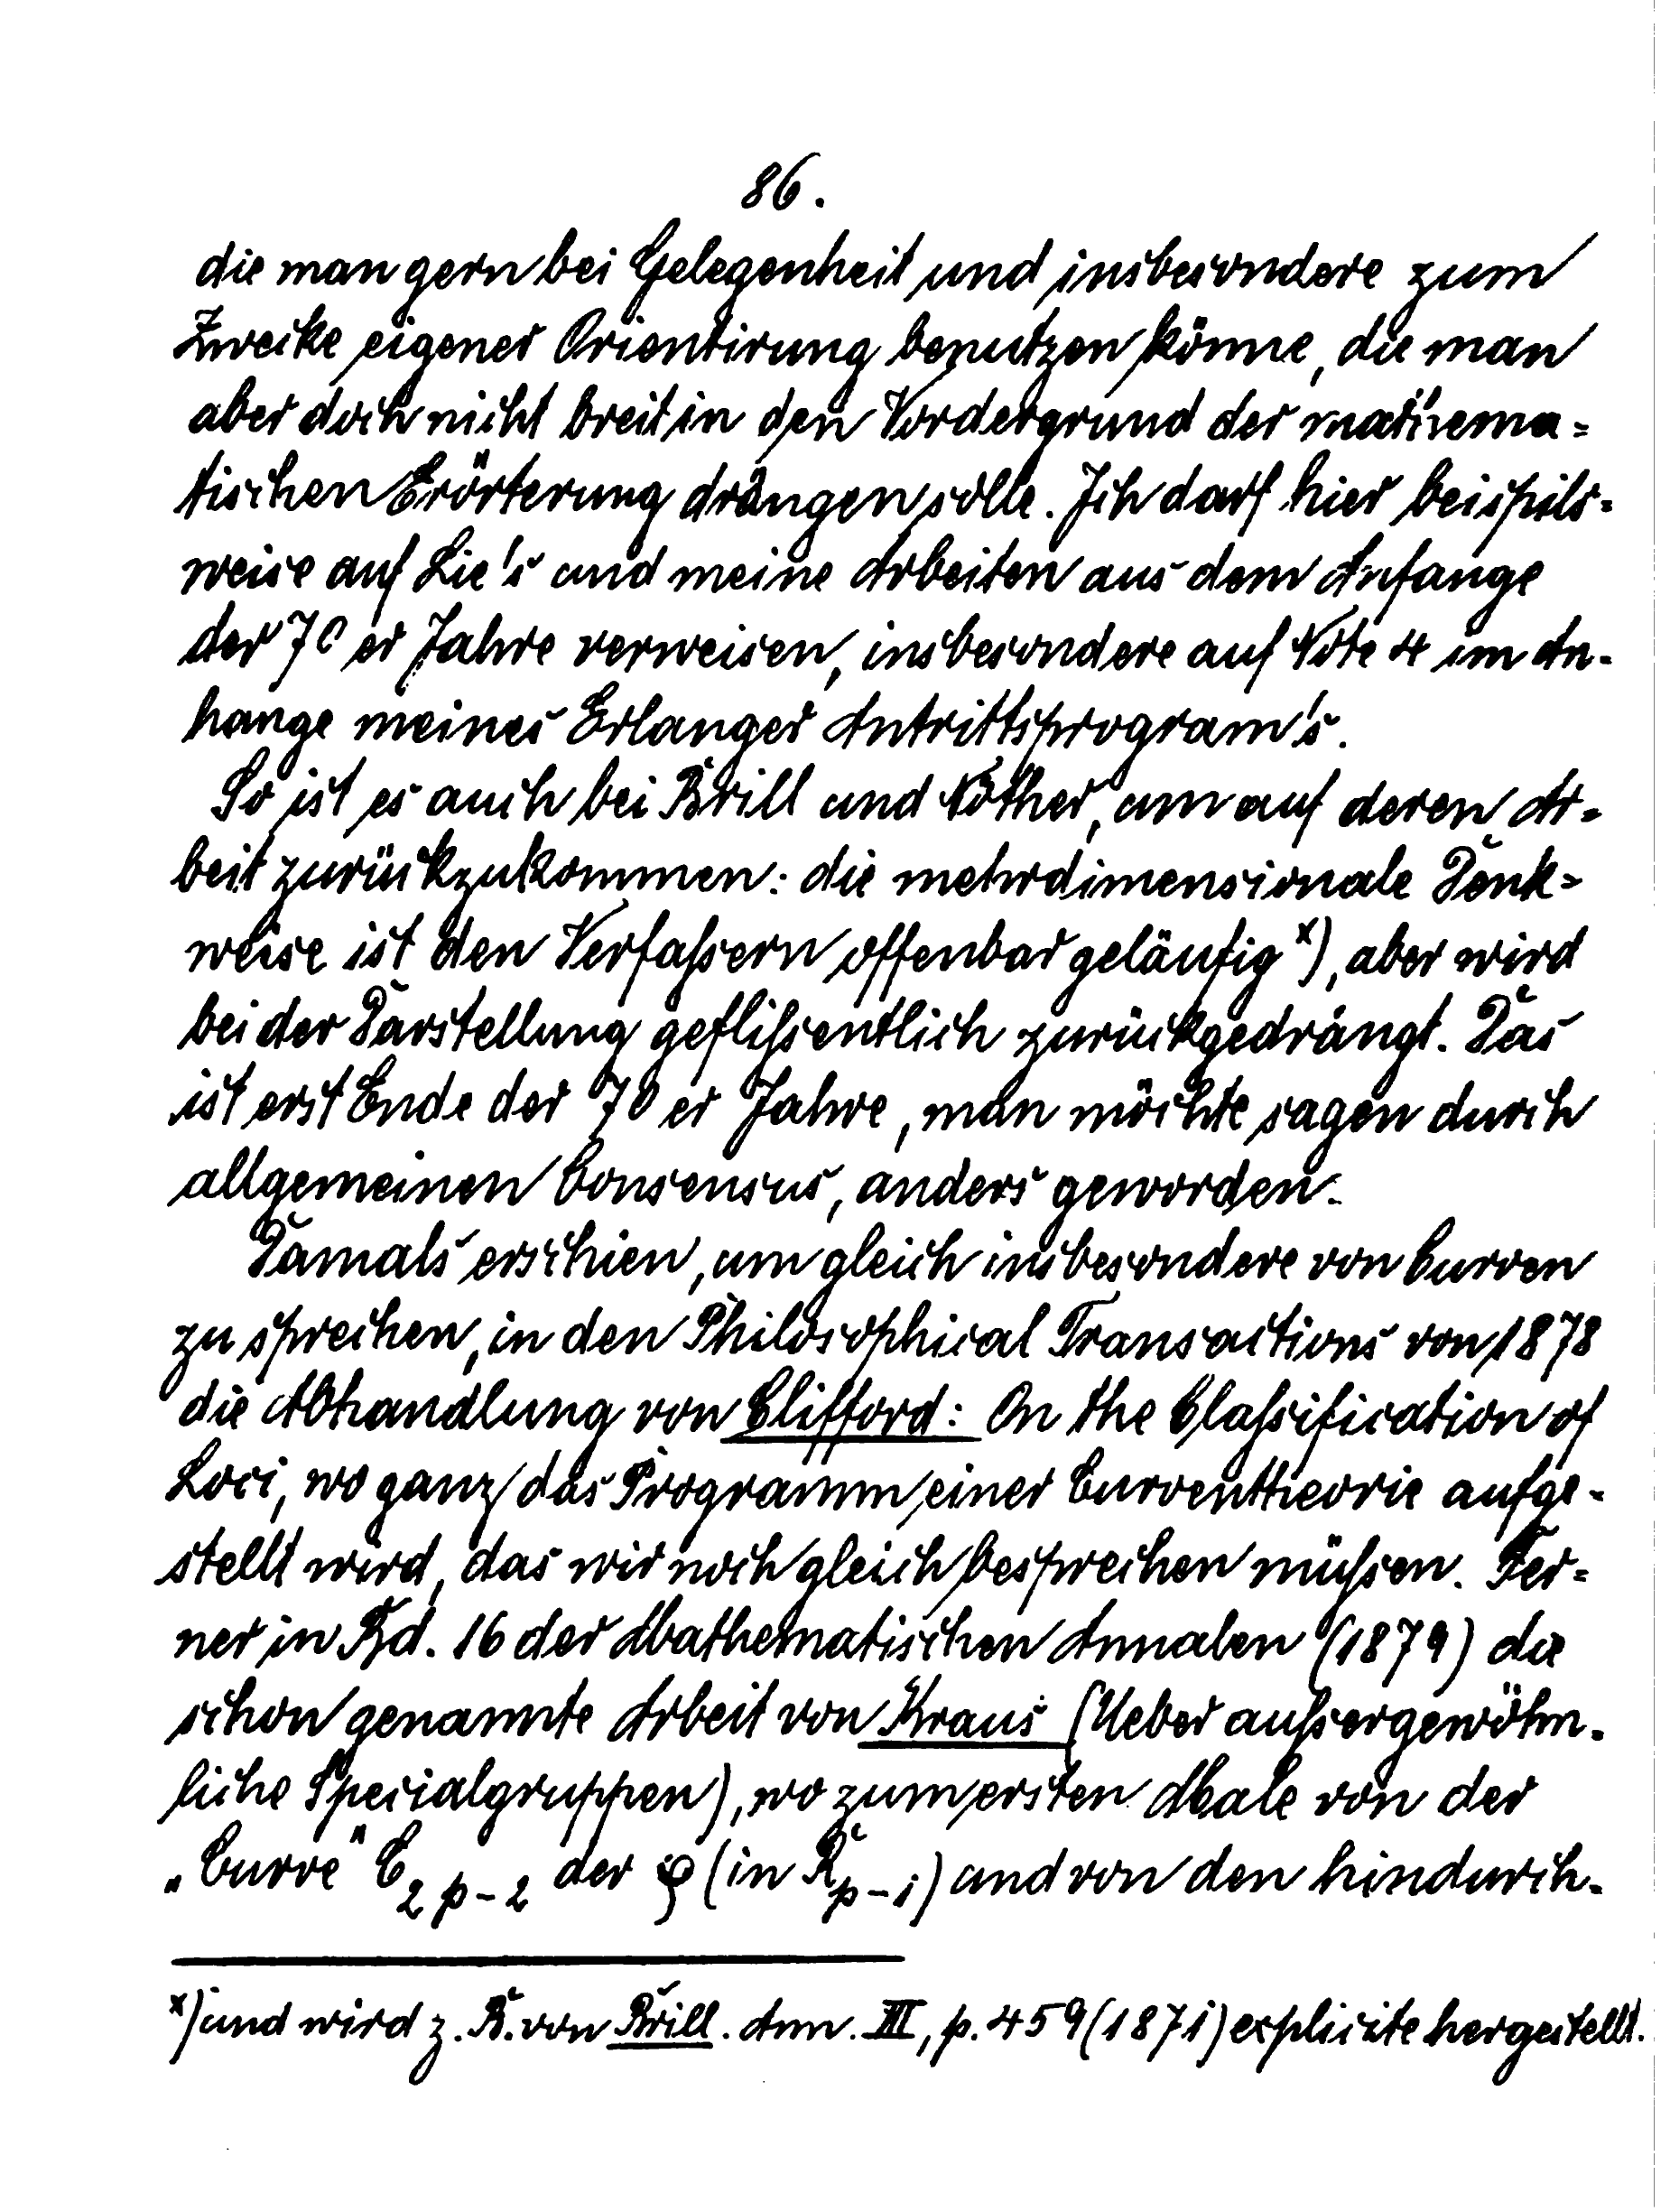 86.
die man gern bei Gelegenheit und insbesondere zum
Zwecke eigener Orientirung benutzen könne, die man
aber doch nicht breit in den Vordergrund der mathema-
tischen Erörterung drängen solle. Ich darf hier beispils-
weise auf Lie's und meine Arbeiten aus dem Anfange
der 70er Jahre verweisen, insbesondere auf Note 4 im An-
hange meines Erlanger Antrittsprogram's.
So ist es auch bei Brill und Nöther, um auf deren Ar-
beit zurückzukommen: die mehrdimensionale Denk-
weise ist den Verfaßern offenbar geläufig x), aber wird
bei der Darstellung geflißentlich zurückgedrängt. Das
ist erst Ende der 70er Jahre, man möchte sagen durch
allgemeinen Consensus, anders geworden.
Damals erschien, um gleich insbesondere von Curven
zu sprechen, in den Philosophical Transactions von 1878
die Abhandlung von Clifford: On the Claßification of
Loci, wo ganz das Programm einer Curventheorie aufge-
stellt wird, das wir noch gleich besprechen müßen. Fer-
ner in Bd. 16 der Mathematischen Annalen (1879) die
schon genannte Arbeit von Kraus (Ueber außergewöhn-
liche Specialgruppen), wo zum ersten Male von der
„Curve" C_{2p-2} der φ (in R_{p-1}) und von den hindurch-
x) und wird z. B. von Brill. Ann. III, p. 459 (1871) explicite hergestellt.